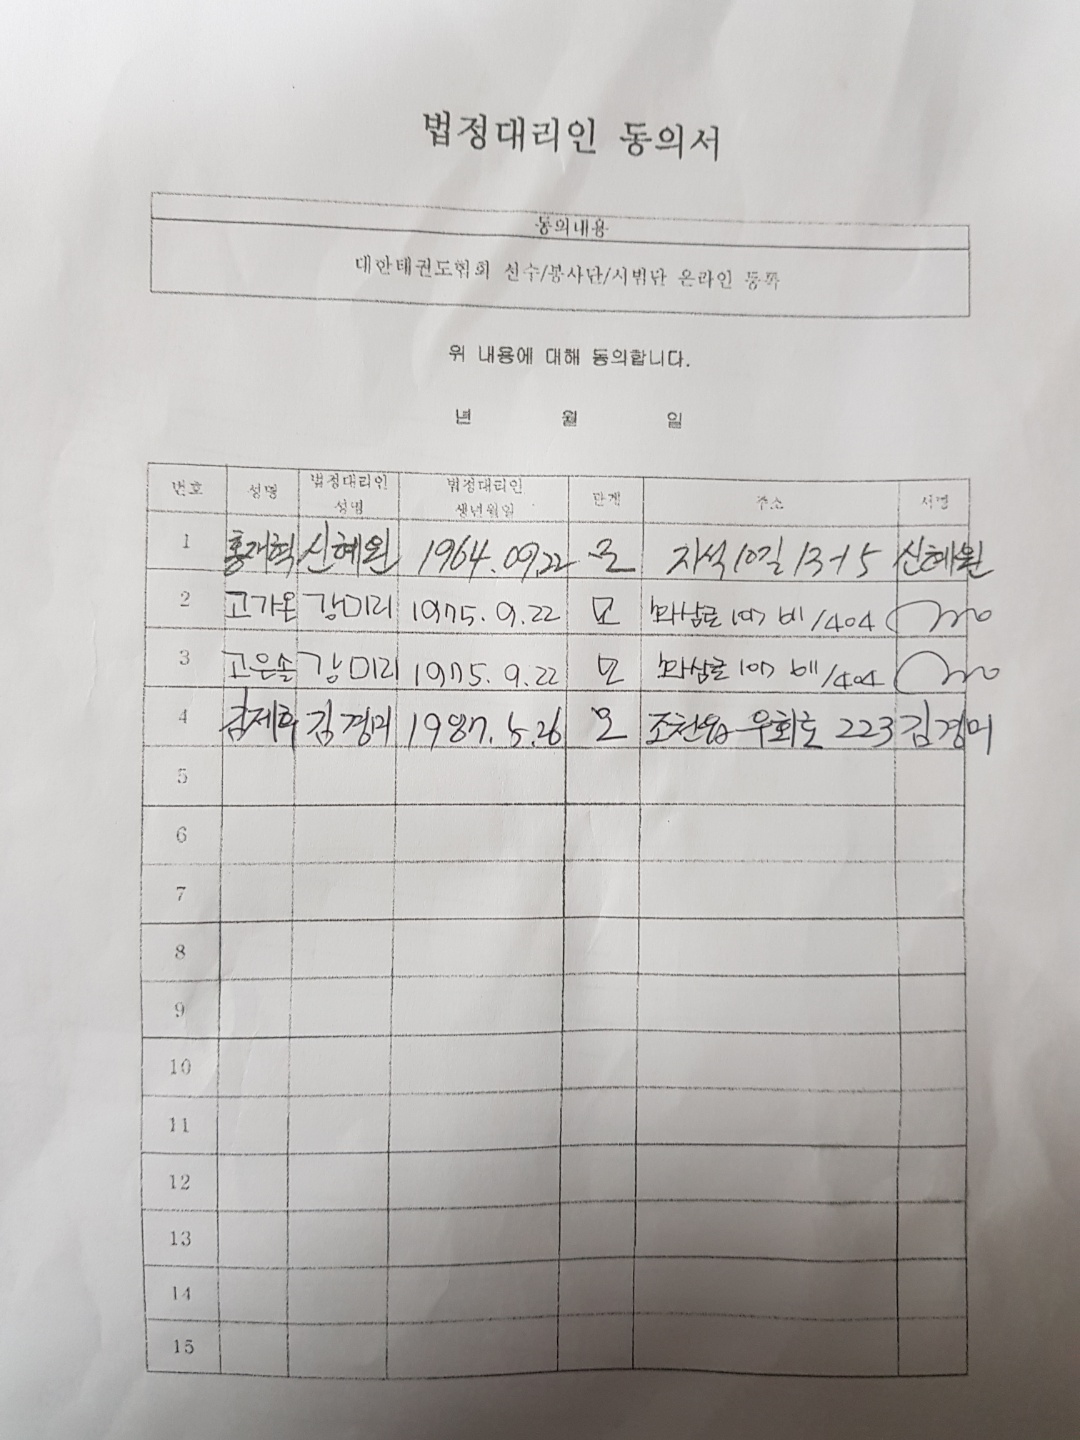 법정대리인 동의서
동의내용
대한태권도협회 선수/봉사단/시범단 온라인 등록
위 내용에 대해 동의합니다.
년 월 일
번호 성명 법정대리인 성명 법정대리인 생년월일 단계 주소 서명
1 홍재혁 신혜원 1964.09.22 모 지석10길 13-15 신혜원
2 고가온 강미리 1975.9.22 모 107 /404
3 고은솔 강미리 1975.9.22 모 107 /404
4 김경미 1987.5.26 모 조천읍 우회로 223 김경미
5
6
7
8
9
10
11
12
13
14
15